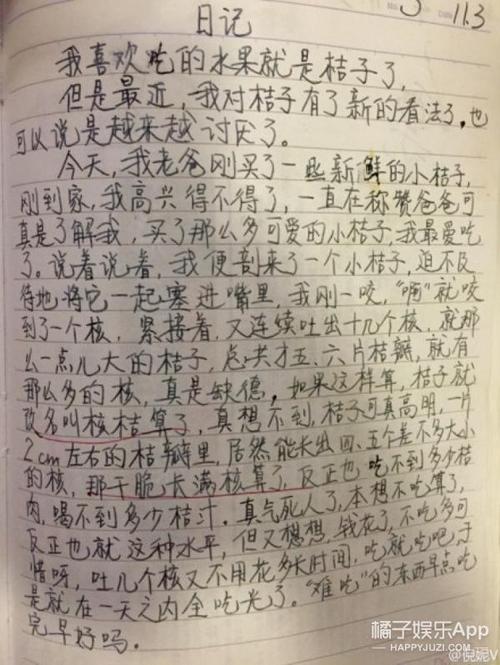 11.3
日记
我喜欢吃的水果就是桔子了,
但是最近,我对桔子有了新的看法了,也
可以说是越来越讨厌了。
今天,我老爸刚买了一些新鲜的小桔子,
刚到家,我高兴得不得了,一直在称赞爸爸可
真是了解我,买了那么多可爱的小桔子,我最爱吃
了。说着说着,我便剖来了一个小桔子,迫不及
待地将它一起塞进嘴里,我刚一咬,“啊”就咬
到了一个核,紧接着,又连续吐出十几个核,就那
么一点儿大的桔子,总共才五、六片桔瓣,就有
那么多的核,真是缺德,如果这样算,桔子就
改名叫核桔算了,真想不到,桔子可真高明,一片
2cm左右的桔瓣里,居然能长出四、五个差不多大小
的核,那干脆长满核算了,反正也吃不到多少桔
肉,喝不到多少桔汁。真气死人了,本想不吃算了,
反正也就这种水平,但又想想,钱花了,不吃多可
惜呀,吐几个核又不用花多长时间,吃就吃吧,于
是就在一天之内全吃光了。“难吃”的东西早点吃
完早好吗。
橘子娱乐App
HAPPYJUZI.COM
@倪妮V